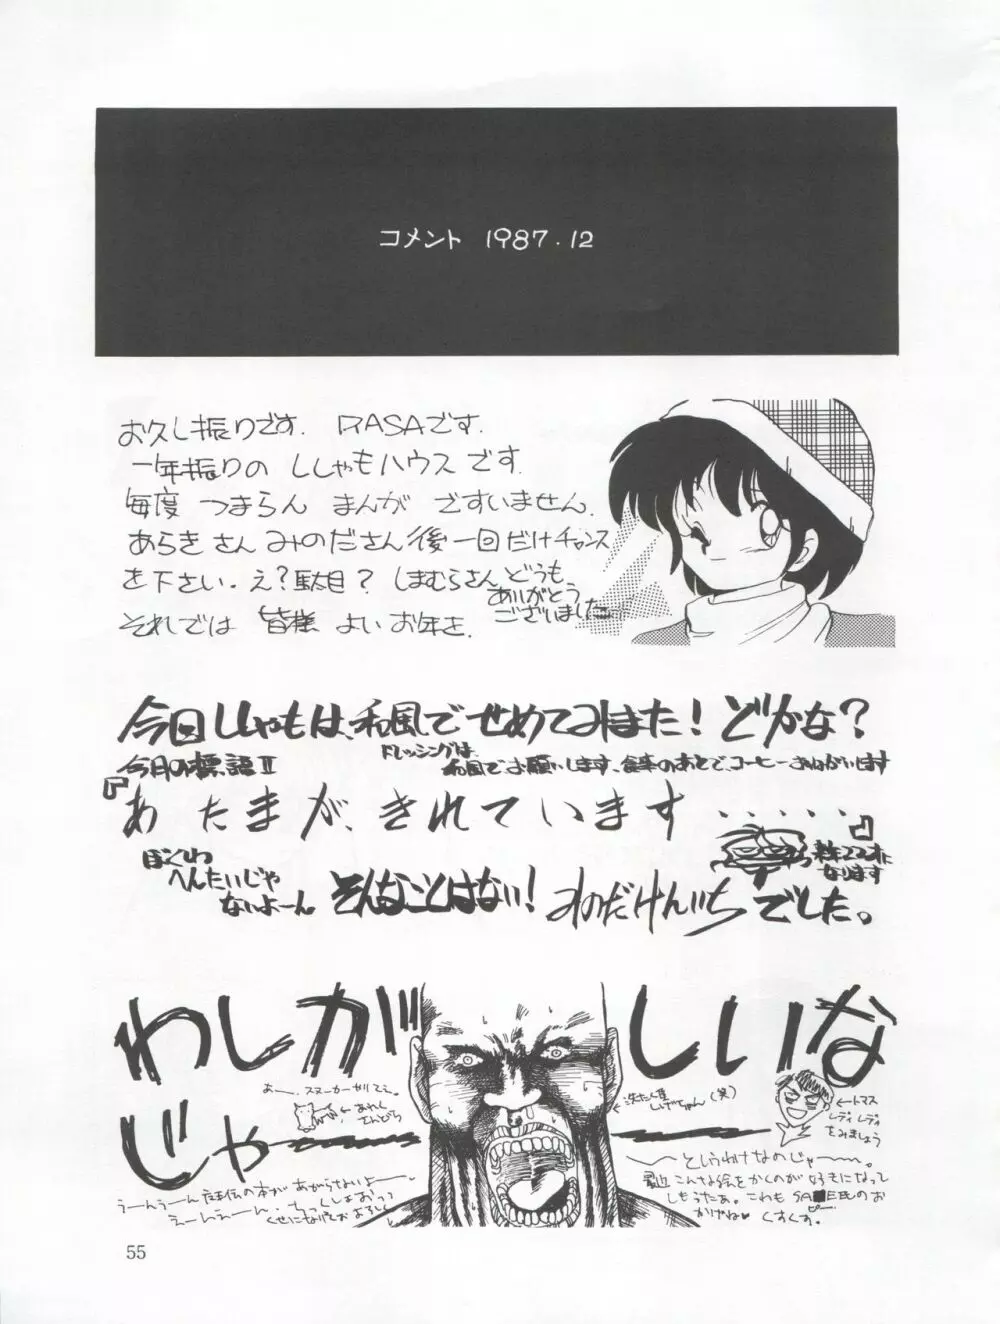 コメント 1987.12
お久し振りです. RASAです.
一年振りの ししゃもハウス です.
毎度 つまらん まんが ですいません.
あらきさん みのださん 後一回だけチャンス
を下さい. え?駄目? しまむらさん どうも
ありがとう
ございました
それでは 皆様 よいお年を.
今回ししゃもは、和風でせめてみました! どかな?
ドレッシングは、
和風でお願いします、食事のあとで、コーヒーおねがいします
今月の標語II
『あたまが、きれています・・・・・』
ぼくわ
へんたいじゃ
ないよーん
そんなことはない!
みのだけんいちでした。
なります
わしが
しいな
じゃー
あー、スヌーカーがしてぇ。
しげちゃん(笑)
←トマス
レディ レディ
をみましょう
というわけなのじゃー。
最近こんな絵をかくのが好きになって
しもうたあ。これもSA■EEのお
ピー
かげね♥ くすくす。
くせになりそでおよろしく
55